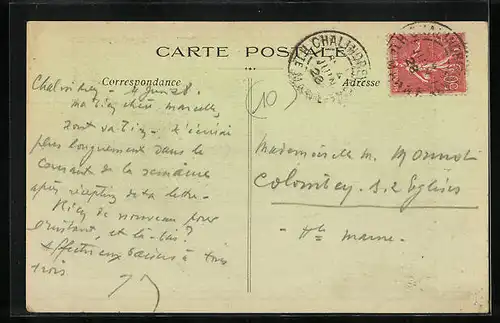 CARTE POSTALE
Correspondance
Adresse
CHALINDREY
Hte MARNE
4 JUIN 28
50c
(10)
Chalindrey - 4 Juin 28.
ma bien chère marcelle,
Dont va bien - t'écrirai
plus longuement dans le
courant de la semaine
après réception de ta lettre.
Rien de nouveau pour
l'instant, et là-bas?
Affectueux baisers à tous
trois
Mademoiselle M. Monnot
Colombey - s. les Eglises
Hte Marne